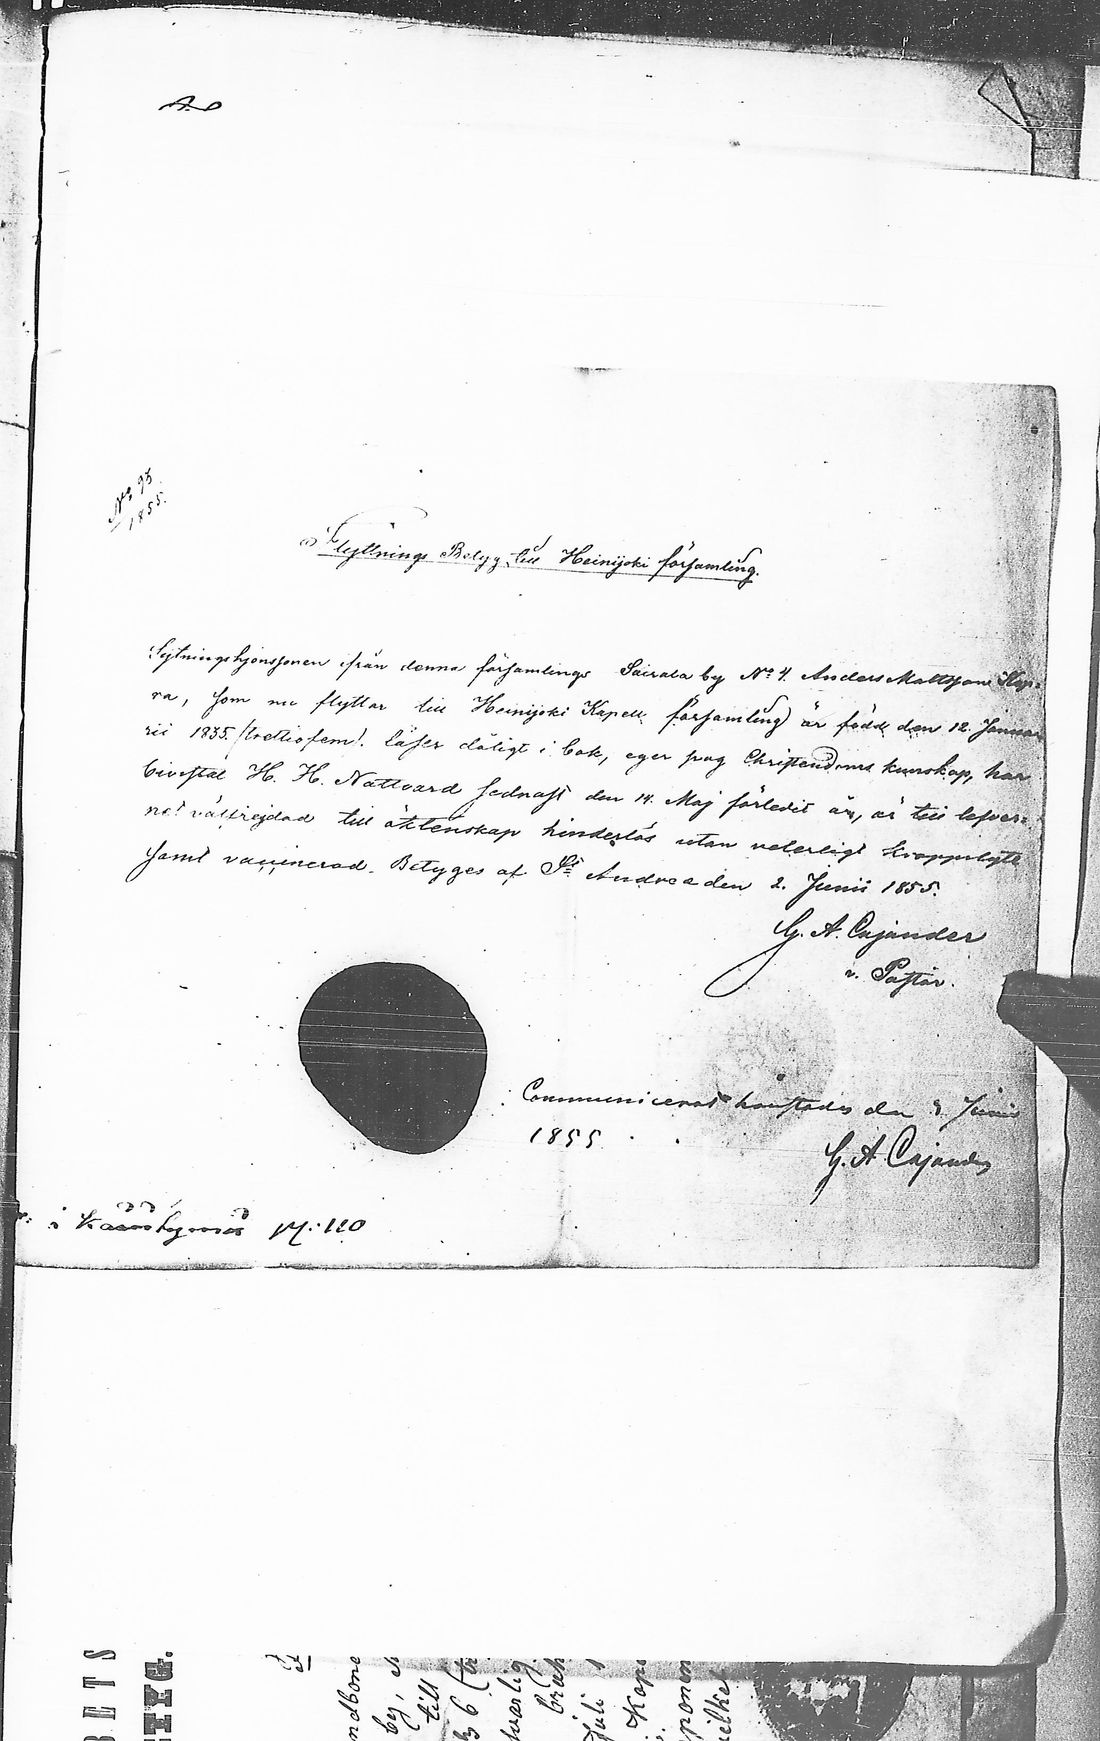 No 95
1855.
Flyttnings Betyg till Heinijoki församling.
Sytningshjonssonen ifrån denna församlings Sairala by No 4. Anders Mattsson
ra, som nu flyttar till Heinijoki Kapell församling är född den 12 Janua-
rii 1835 /trettiofem/. Läser dåligt i bok, eger svag Christendoms kunskap, har
bivistat H. H. Nattvard sednast den 14. Maj förledit år, är till lefver-
net välfrejdad till äktenskap hinderlös utan veterligt kroppslyte
samt vaccinerad. Betyges af St Andreæ den 2. Junii 1855.
G. A. Cajander
v. Pastor.
Communicerat härstädes den 3 Junii
1855
G. A Cajander
i pag: 110
BETS
TYG.
ndbone
by, 
till
6 (tr
svarlig
bräk
Juli 1
Kape
ponon
vilket